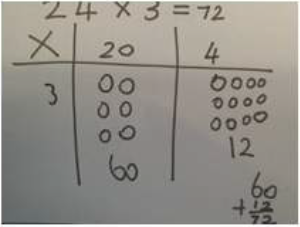 24 × 3 = 72
X 20 4
3 00 0000
00 0000
00 0000
60 12
60
+12
72